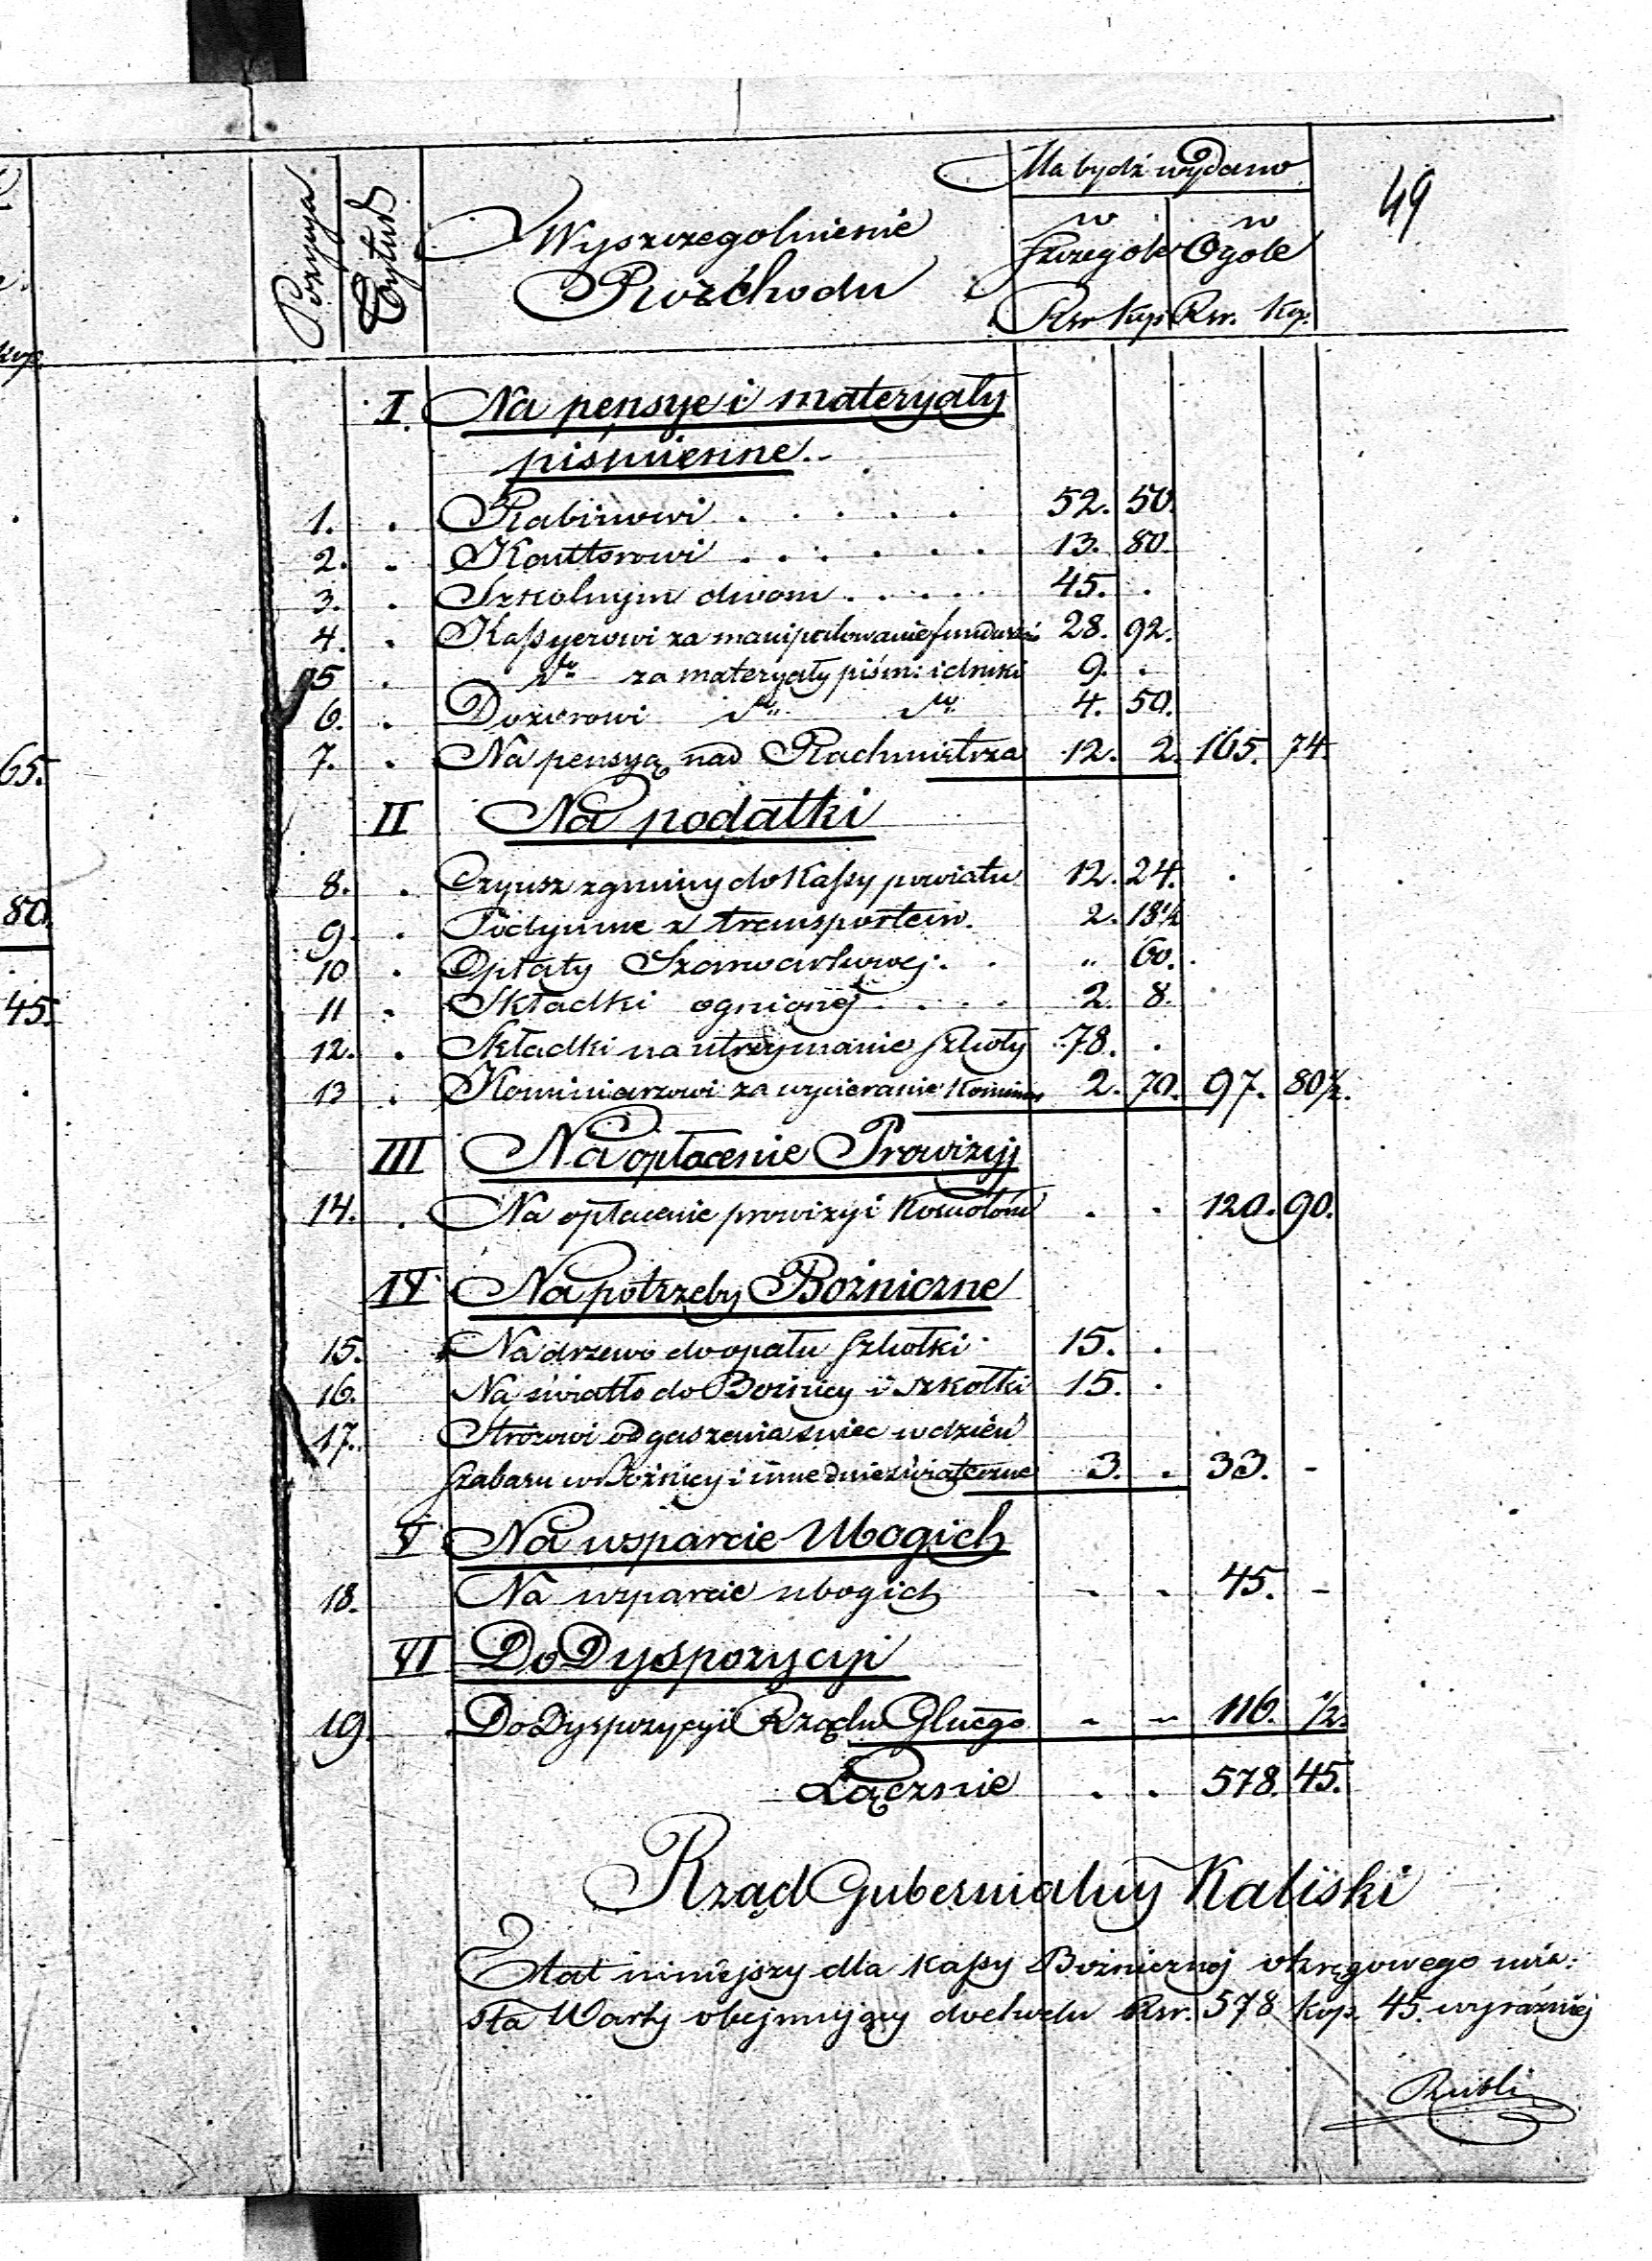 Ma bydź wydano
49
Pozycya
Tytuł
Wyszczegolnienie
Rozchodu
w Szczegole
w Ogole
Rsr Kop. Rsr. Kop.
kop.
I. Na pensye i materyały
piśmienne.
1. . Rabinowi . . . . . 52. 50.
2. . Kantorowi . . . . . . 13. 80.
3. . Szkolnym dwom . . . . . 45. .
4. . Kaſsyerowi za manipulowanie funduszów 28. 92.
5 . dto za materyały piśm: i druki 9. .
6. . Dozorowi dto dto 4. 50.
7. . Na pensyą nad Rachmistrza 12. 2. 165. 74.
65.
II Na podatki
8. . Czynsz z gminy do Kaſsy powiatu 12. 24. .
80.
9. . Podymne z transportem. 2. 18½
10 . Opłaty Szarwarkowej . . " 60.
45.
11 . Składki ogniowej . . . . 2. 8.
12. . Składki na utrzymanie szkoły 78. .
13 . Kominiarzowi za wycieranie Kominów 2. 70. 97. 80½.
III Na opłacenie Prowizyj
14. . Na opłacenie prowizyi Kościołów . . 120. 90.
IV Na potrzeby Bożniczne
15. Na drzewo do opału szkołki 15. .
16. Na światło do Bożnicy i szkołki 15. .
17. Stróżowi od gaszenia świec w dzień
szabasu w Bożnicy i inne dnie świąteczne 3. . 33. -
V Na wsparcie Ubogich
18. Na wsparcie ubogich - . 45. -
VI Do Dyspozycyi
19. Do Dyspozycyi Rządu Glnego - - 116. ½.
Łącznie . . 578. 45.
Rząd Gubernialny Kaliski
Etat niniejszy dla Kaſsy Bożnicznej okręgowego mia:
sta Warty obejmujący dochodu Rsr. 578 kop. 45. wyraźniej